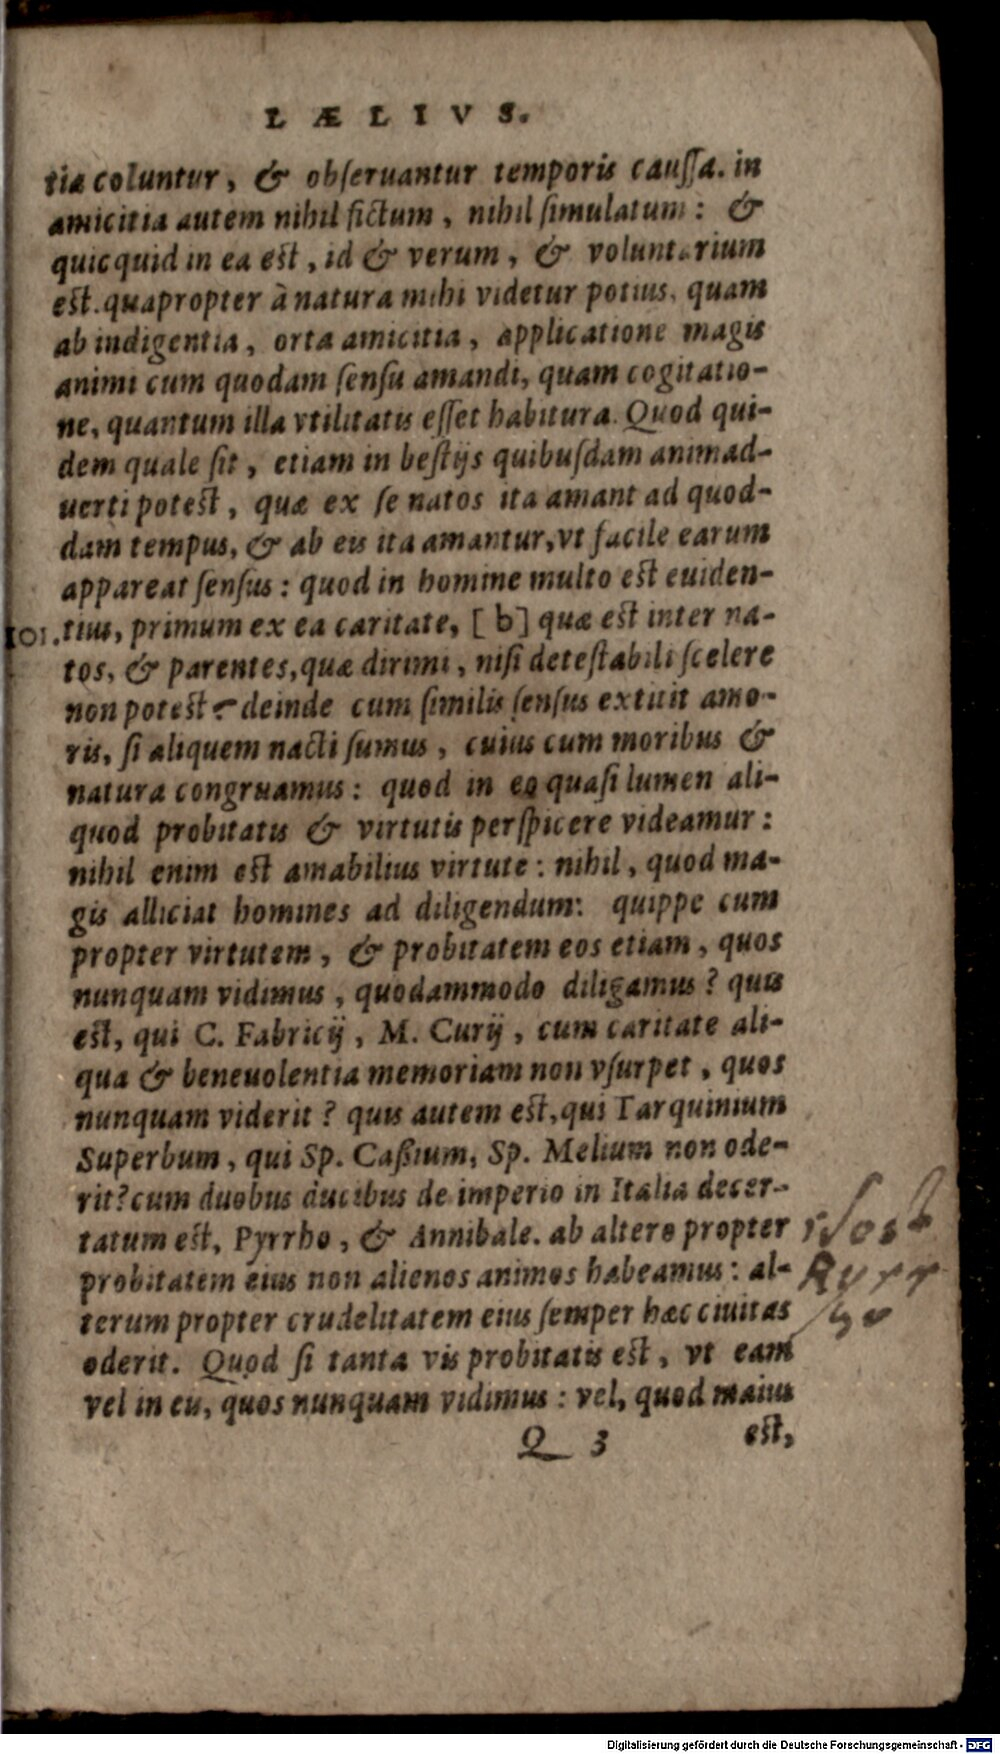 LÆLIVS.
tiæ coluntur, & obſeruantur temporis cauſſa. in
amicitia autem nihil fictum, nihil ſimulatum: &
quicquid in ea est, id & verum, & voluntarium
est. quapropter à natura mihi videtur potius, quam
ab indigentia, orta amicitia, applicatione magis
animi cum quodam ſenſu amandi, quam cogitatio-
ne, quantum illa vtilitatis eſſet habitura. Quod qui-
dem quale ſit, etiam in beſtijs quibuſdam animad-
uerti potest, quæ ex ſe natos ita amant ad quod-
dam tempus, & ab eis ita amantur, vt facile earum
appareat ſenſus: quod in homine multo est euiden-
101. tius, primum ex ea caritate, [b] quæ est inter na-
tos, & parentes, quæ dirimi, niſi deteſtabili ſcelere
non potest deinde cum ſimilis ſenſus extitit amo-
ris, ſi aliquem nacti ſumus, cuius cum moribus &
natura congruamus: quod in eo quaſi lumen ali-
quod probitatis & virtutis perſpicere videamur:
nihil enim est amabilius virtute: nihil, quod ma-
gis alliciat homines ad diligendum: quippe cum
propter virtutem, & probitatem eos etiam, quos
nunquam vidimus, quodammodo diligamus? quis
est, qui C. Fabricij, M. Curij, cum caritate ali-
qua & beneuolentia memoriam non vſurpet, quos
nunquam viderit? quis autem est, qui Tarquinium
Superbum, qui Sp. Caßium, Sp. Melium non ode-
rit? cum duobus ducibus de imperio in Italia decer-
tatum est, Pyrrho, & Annibale. ab altero propter
probitatem eius non alienos animos habeamus: al-
terum propter crudelitatem eius ſemper hæc ciuitas
oderit. Quod ſi tanta vis probitatis est, vt eam
vel in eis, quos nunquam vidimus: vel, quod maius
Q 3 est,
Digitalisierung gefördert durch die Deutsche Forschungsgemeinschaft - DFG